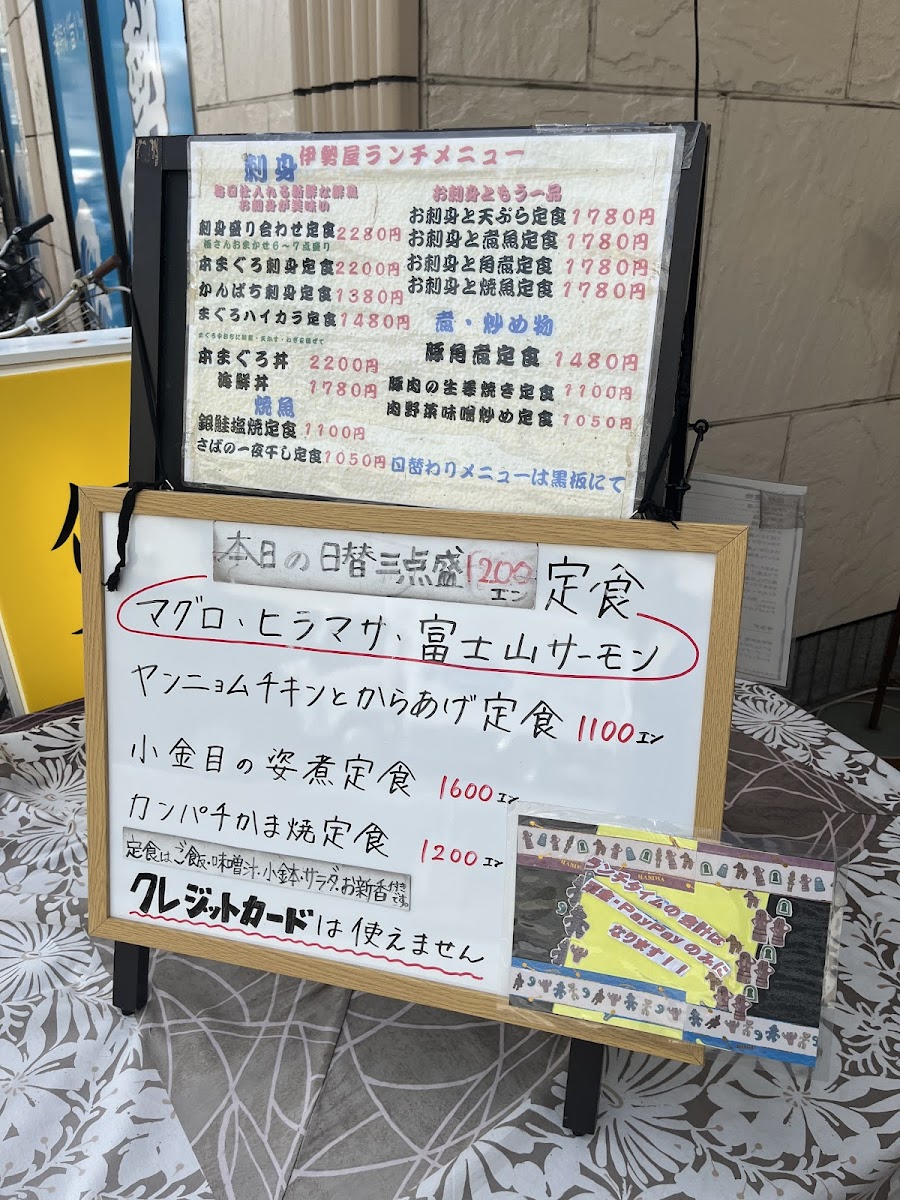 伊勢屋ランチメニュー
刺身
毎日仕入れる新鮮な鮮魚
お刺身が美味の
刺身盛り合わせ定食2280円
板さんおまかせ6〜7点盛り
本まぐろ刺身定食2200円
かんぱち刺身定食1380円
まぐろハイカラ定食1480円
本まぐろ丼 2200円
海鮮丼 1780円
焼魚
銀鮭塩焼定食1100円
さばの一夜干し定食1050円
お刺身ともう一品
お刺身と天ぷら定食1780円
お刺身と煮魚定食1780円
お刺身と角煮定食1780円
お刺身と焼魚定食1780円
煮・炒め物
豚角煮定食 1480円
豚肉の生姜焼き定食 1100円
肉野菜味噌炒め定食 1050円
日替わりメニューは黒板にて
本日の日替三点盛1200エン 定食
マグロ、ヒラマサ、富士山サーモン
ヤンニョムチキンとからあげ定食 1100エン
小金目の姿煮定食 1600エン
カンパチかま焼定食 1200エン
定食はご飯・味噌汁・小鉢・サラダ・お新香付きです。
クレジットカードは使えません
HANIWA
HANIWA
ランチタイムの会計は
現金・PayPayのみに
なります!!